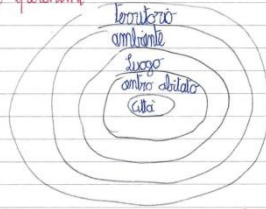 territorio
ambiente
Luogo
centro abitato
Città